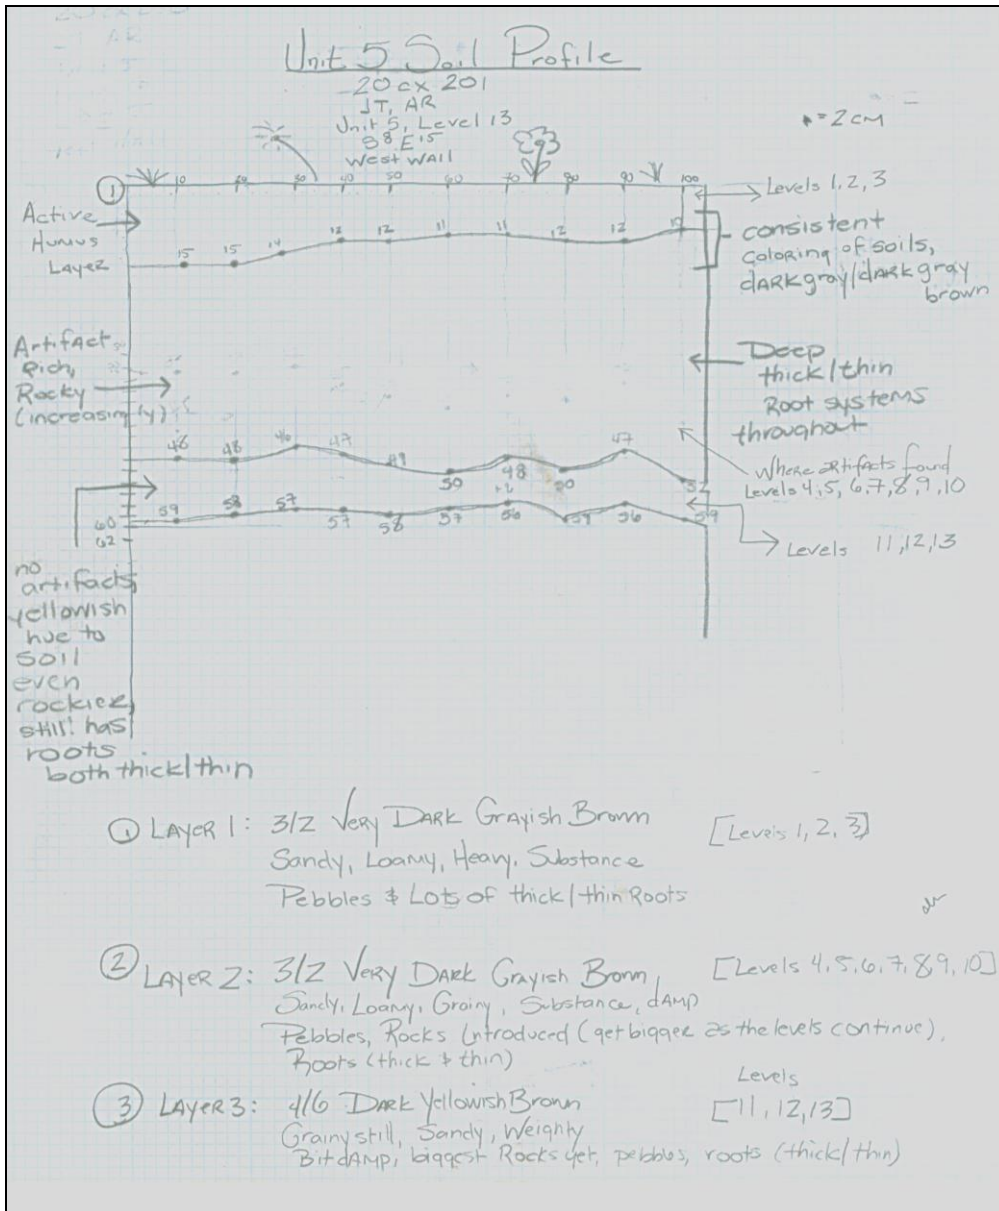 Unit 5 Soil Profile
20 cx 201
JT, AR
Unit 5, Level 13
S8 E15
West Wall
= 2 cm
1
10
20
30
40
50
60
70
80
90
100
Levels 1, 2, 3
Active
Humus
Layer
15
15
14
12
12
11
11
12
12
10
consistent
coloring of soils,
dark gray/dark gray
brown
Artifact
Rich,
Rocky
(increasingly)
Deep
thick/thin
Root systems
throughout
Where artifacts found
Levels 4, 5, 6, 7, 8, 9, 10
48
48
46
47
49
50
48
50
47
52
59
58
57
57
58
57
56
59
56
59
60
62
Levels 11, 12, 13
no
artifacts,
yellowish
hue to
soil
even
rockier,
still has
roots
both thick/thin
1 Layer 1: 3/2 Very Dark Grayish Brown [Levels 1, 2, 3]
Sandy, Loamy, Heavy, Substance
Pebbles & Lots of thick/thin Roots
2 Layer 2: 3/2 Very Dark Grayish Brown, [Levels 4, 5, 6, 7, 8, 9, 10]
Sandy, Loamy, Grainy, Substance, damp
Pebbles, Rocks introduced (get bigger as the levels continue),
Roots (thick & thin)
3 Layer 3: 4/6 Dark Yellowish Brown Levels [11, 12, 13]
Grainy still, Sandy, Weighty
Bit damp, biggest Rocks yet, pebbles, roots (thick/thin)